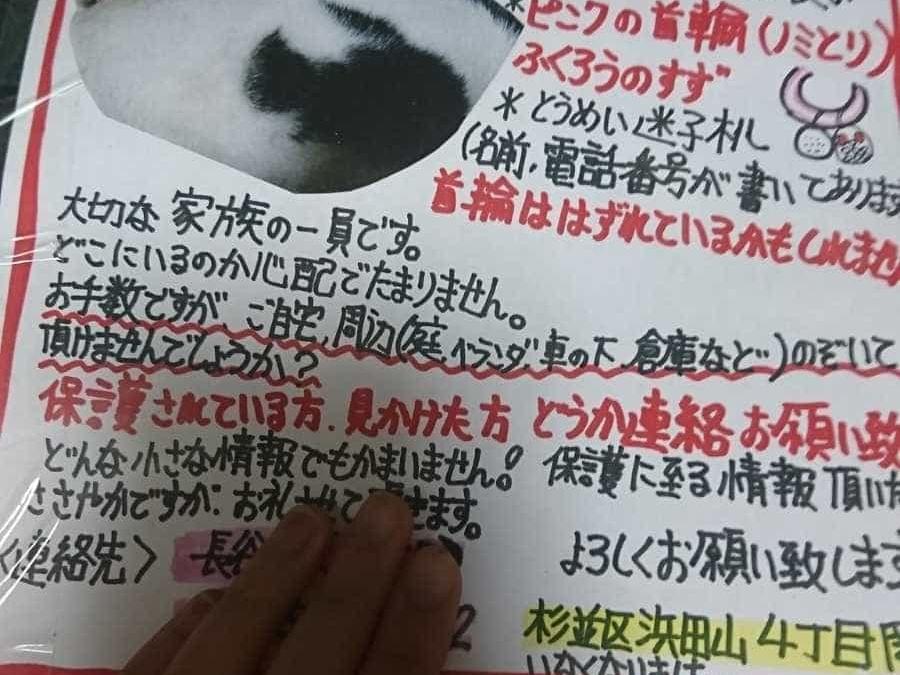 *ピンクの首輪(ノミとり)
ふくろうのすず
*とうめい迷子札
(名前、電話番号が書いてあります
首輪ははずれているかもしれませ
大切な家族の一員です。
どこにいるのか心配でたまりません。
お手数ですが、ご自宅、周辺(庭、ベランダ、車の下、倉庫など)のぞいて
頂けませんでしょうか?
保護されている方、見かけた方 どうか連絡お願い致
どんな小さな情報でもかまいません!
ささやかですが、お礼させて頂きます。
保護に至る情報頂いた
〈連絡先〉 長谷
よろしくお願い致します
2
杉並区浜田山4丁目
いなくなりました